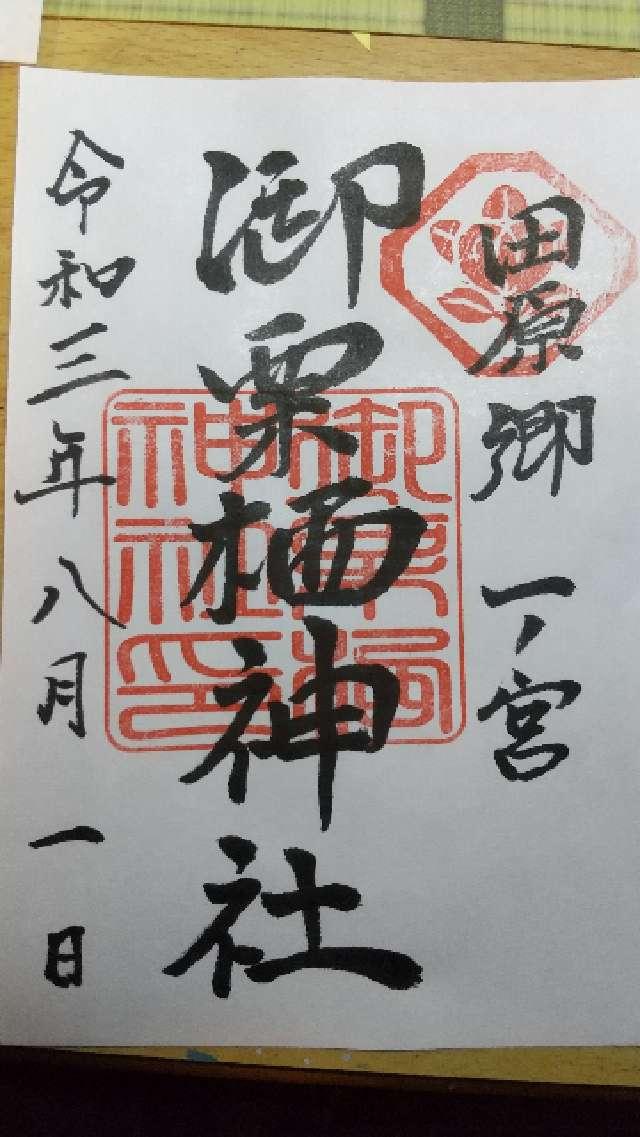 田原郷 一ノ宮
御栗栖神社
御栗栖神社印
令和三年八月 一日